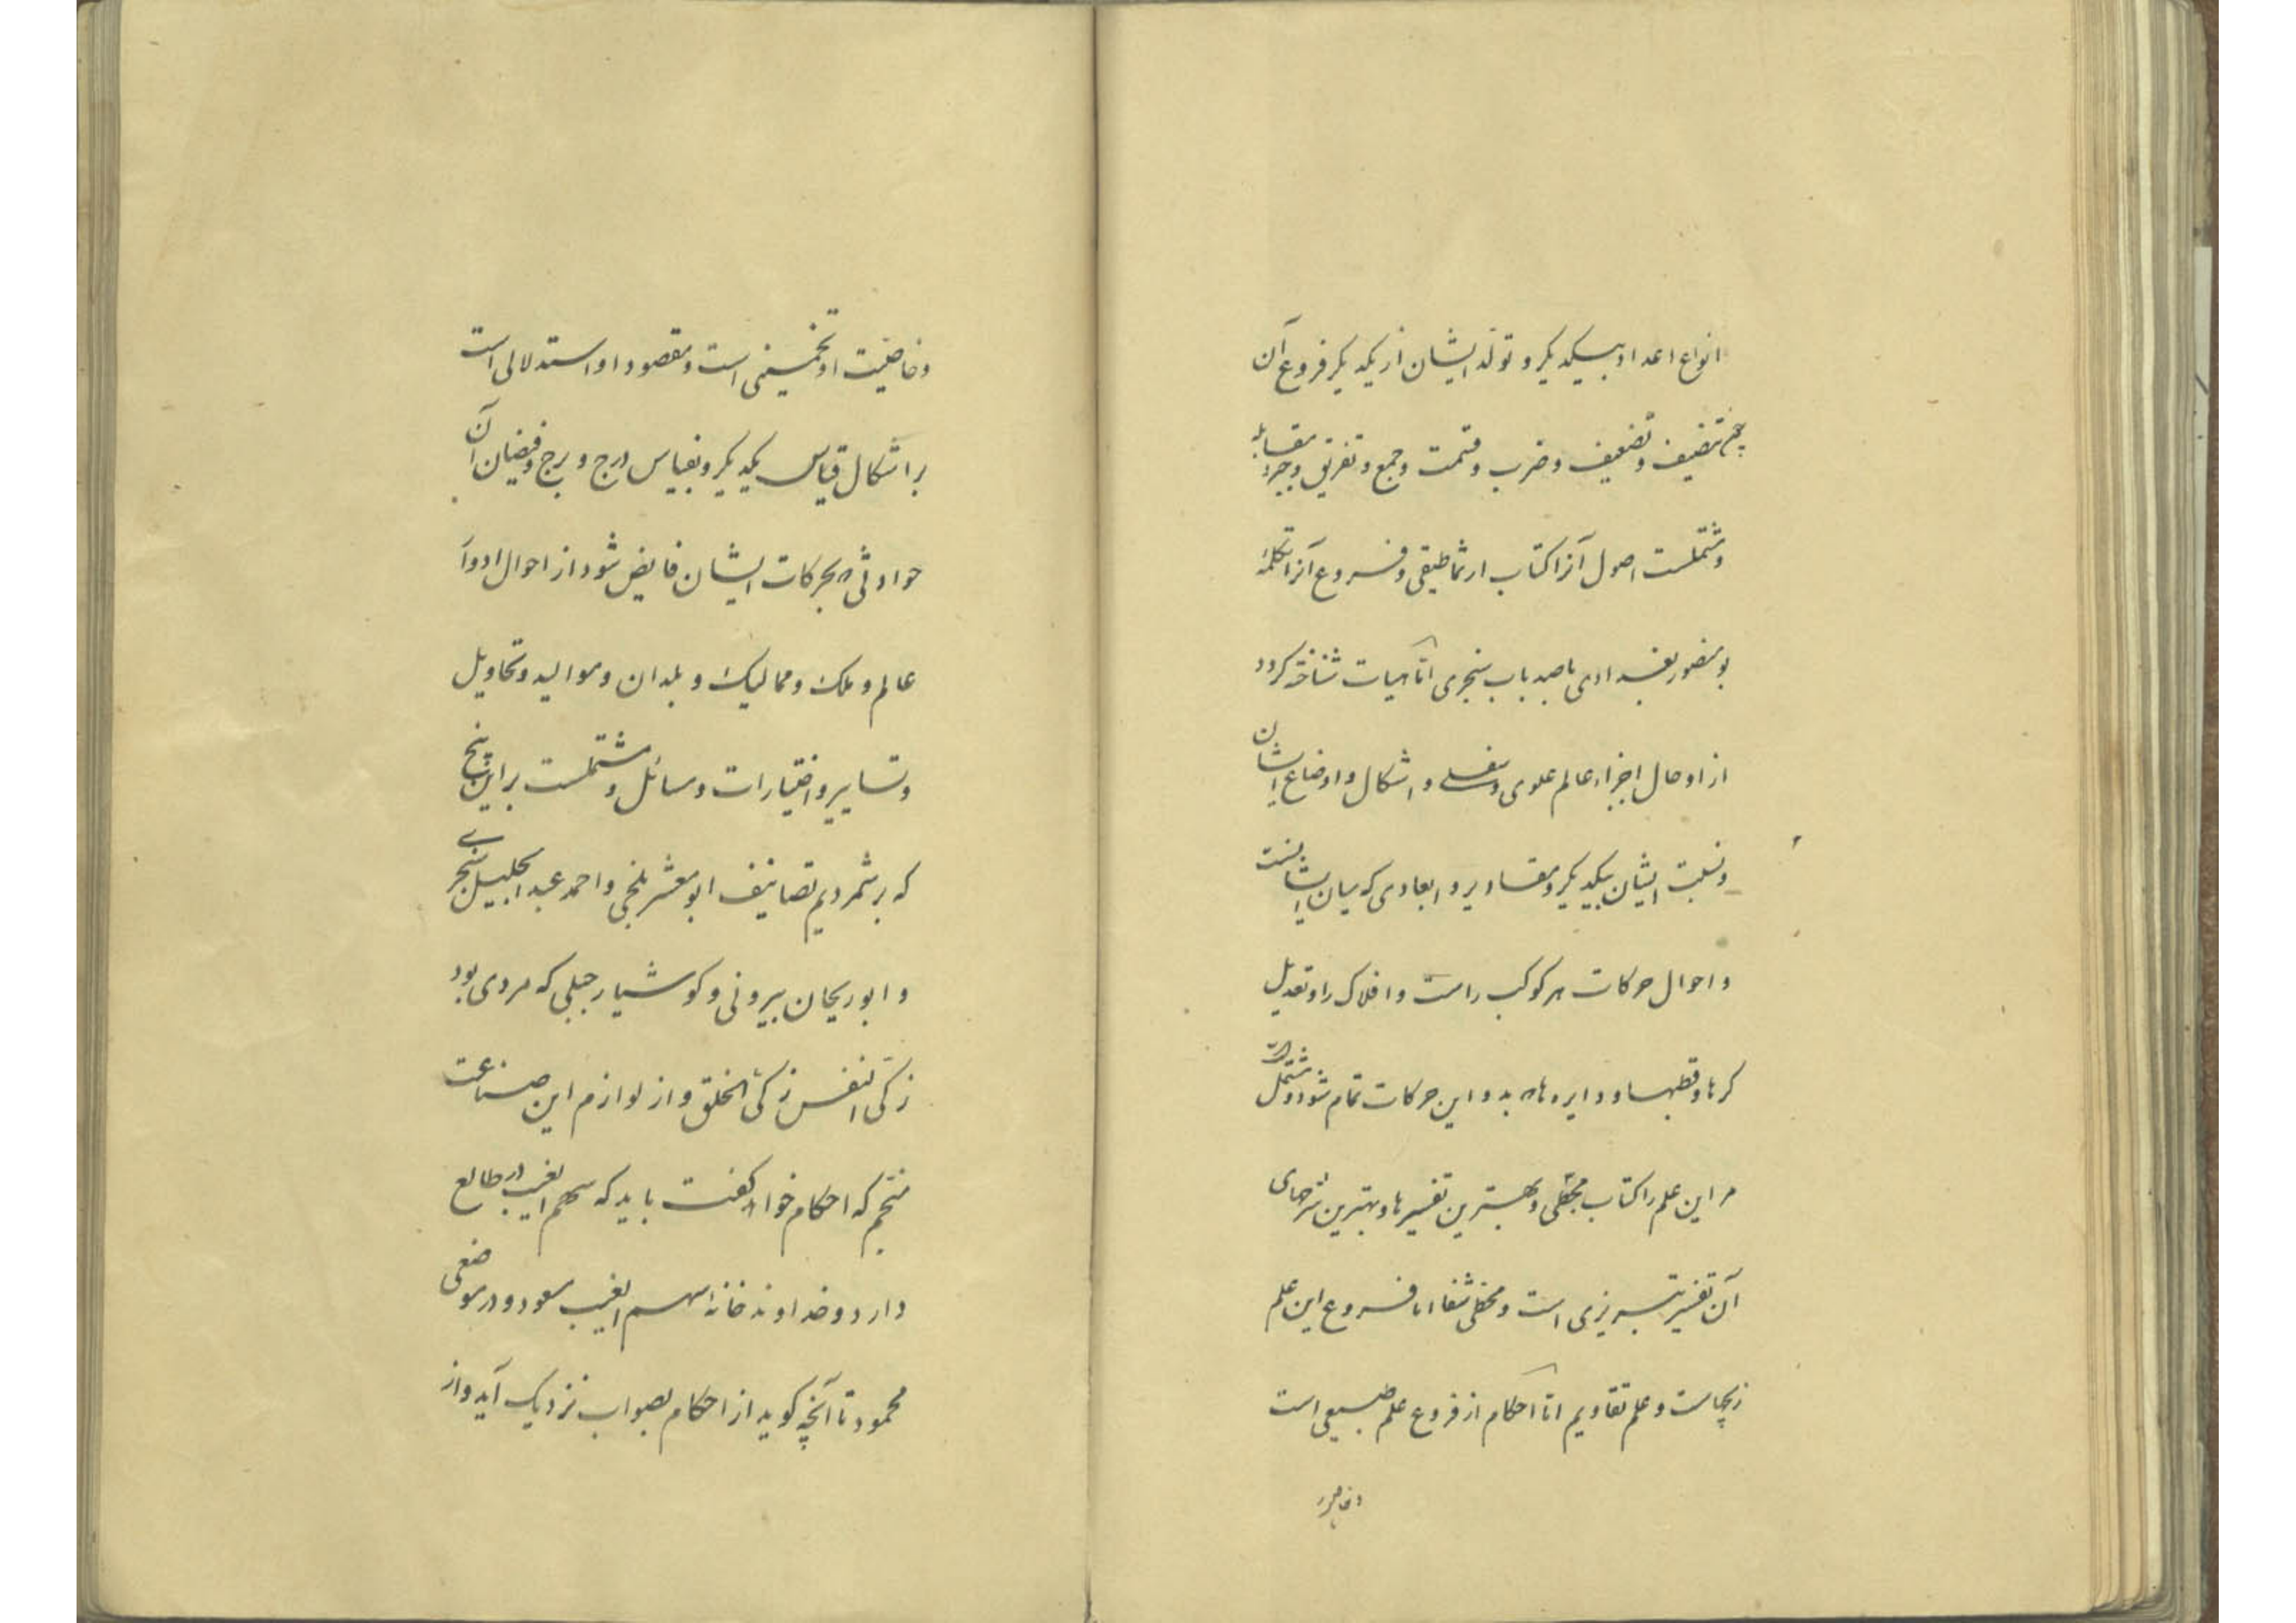 انواع اعداد بیکدیگر و تولد ایشان از یکدیگر فروع آن
چو تنصیف و تضعیف و ضرب و قسمت و جمع و تفریق و جبر و مقابله
و مشتملست اصول آنرا کتاب ارثماطیقی و فروع آنرا تکلمهٔ
بو منصور بغدادی یا صد باب سنجری اما هیات شناخته کردد
از او حال اجزاء عالم علوی و سفلی و اشکال و اوضاع ایشان
و نسبت ایشان بیکدیگر و مقادیر و ابعادی که میان ایشانست
و احوال حرکات هر کوکب راست و افلاک را و تعدیل
کرها و قطبها و دایره ها که بدو این حرکات تمام شود و مشتمل است
مر این علم را کتاب مجطی و بهترین تفسیرها و بهترین شرحهای
آن تفسیر تبریزی است و مجطی شفا اما فروع این علم
زیجهاست و علم تقاویم اما احکام از فروع علم طبیعی است
و خاصیت
و خاصیت او تخمینی است و مقصود او استدلالی است
بر اشکال قیاس یکدیگر و بقیاس درج و برج و فیضان آن
حوادثی که بحرکات ایشان فایض شود از احوال ادوا
عالم و ملک و ممالیک و بلدان و موالید و تحاویل
و تسایر و اختیارات و مسائل و مشتملست بر این پنج
که بر شمردیم تصانیف ابو معشر بلخی و احمد عبد الجلیل سنجری
و ابو ریحان بیرونی و کوشیار جبلی که مردی بود
زکی النفس زکی الخلق و از لوازم این صناعت
منجم که احکام خواهد کفت باید که سهم الغیب در طالع
دارد و خداوند خانهٔ سهم الغیب مسعود و در موضعی
محمود تا آنچه کوید از احکام بصواب نزدیک آید و از